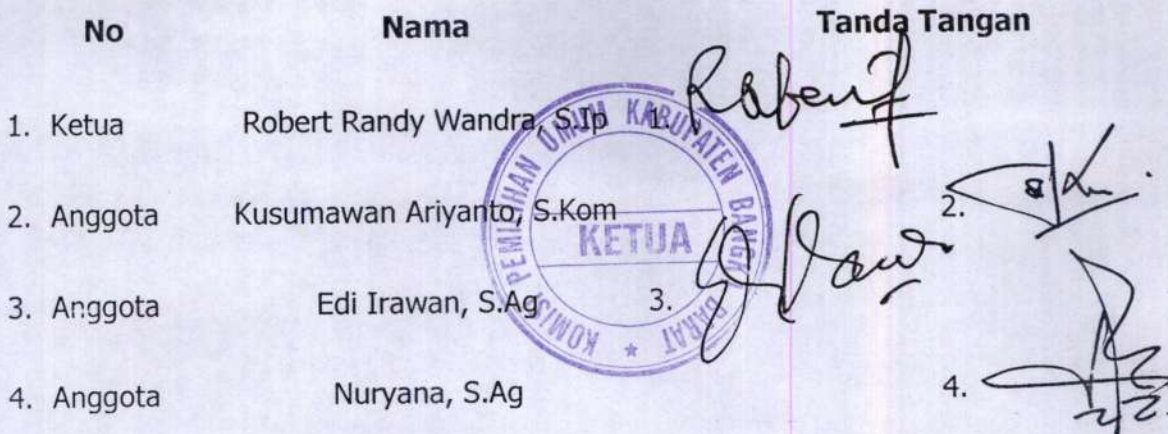 No Nama Tanda Tangan
1. Ketua Robert Randy Wandra, S.Ip 1.
2. Anggota Kusumawan Ariyanto, S.Kom 2.
3. Anggota Edi Irawan, S.Ag 3.
4. Anggota Nuryana, S.Ag 4.
KOMISI PEMILIHAN UMUM KABUPATEN BANGKA BARAT
KETUA